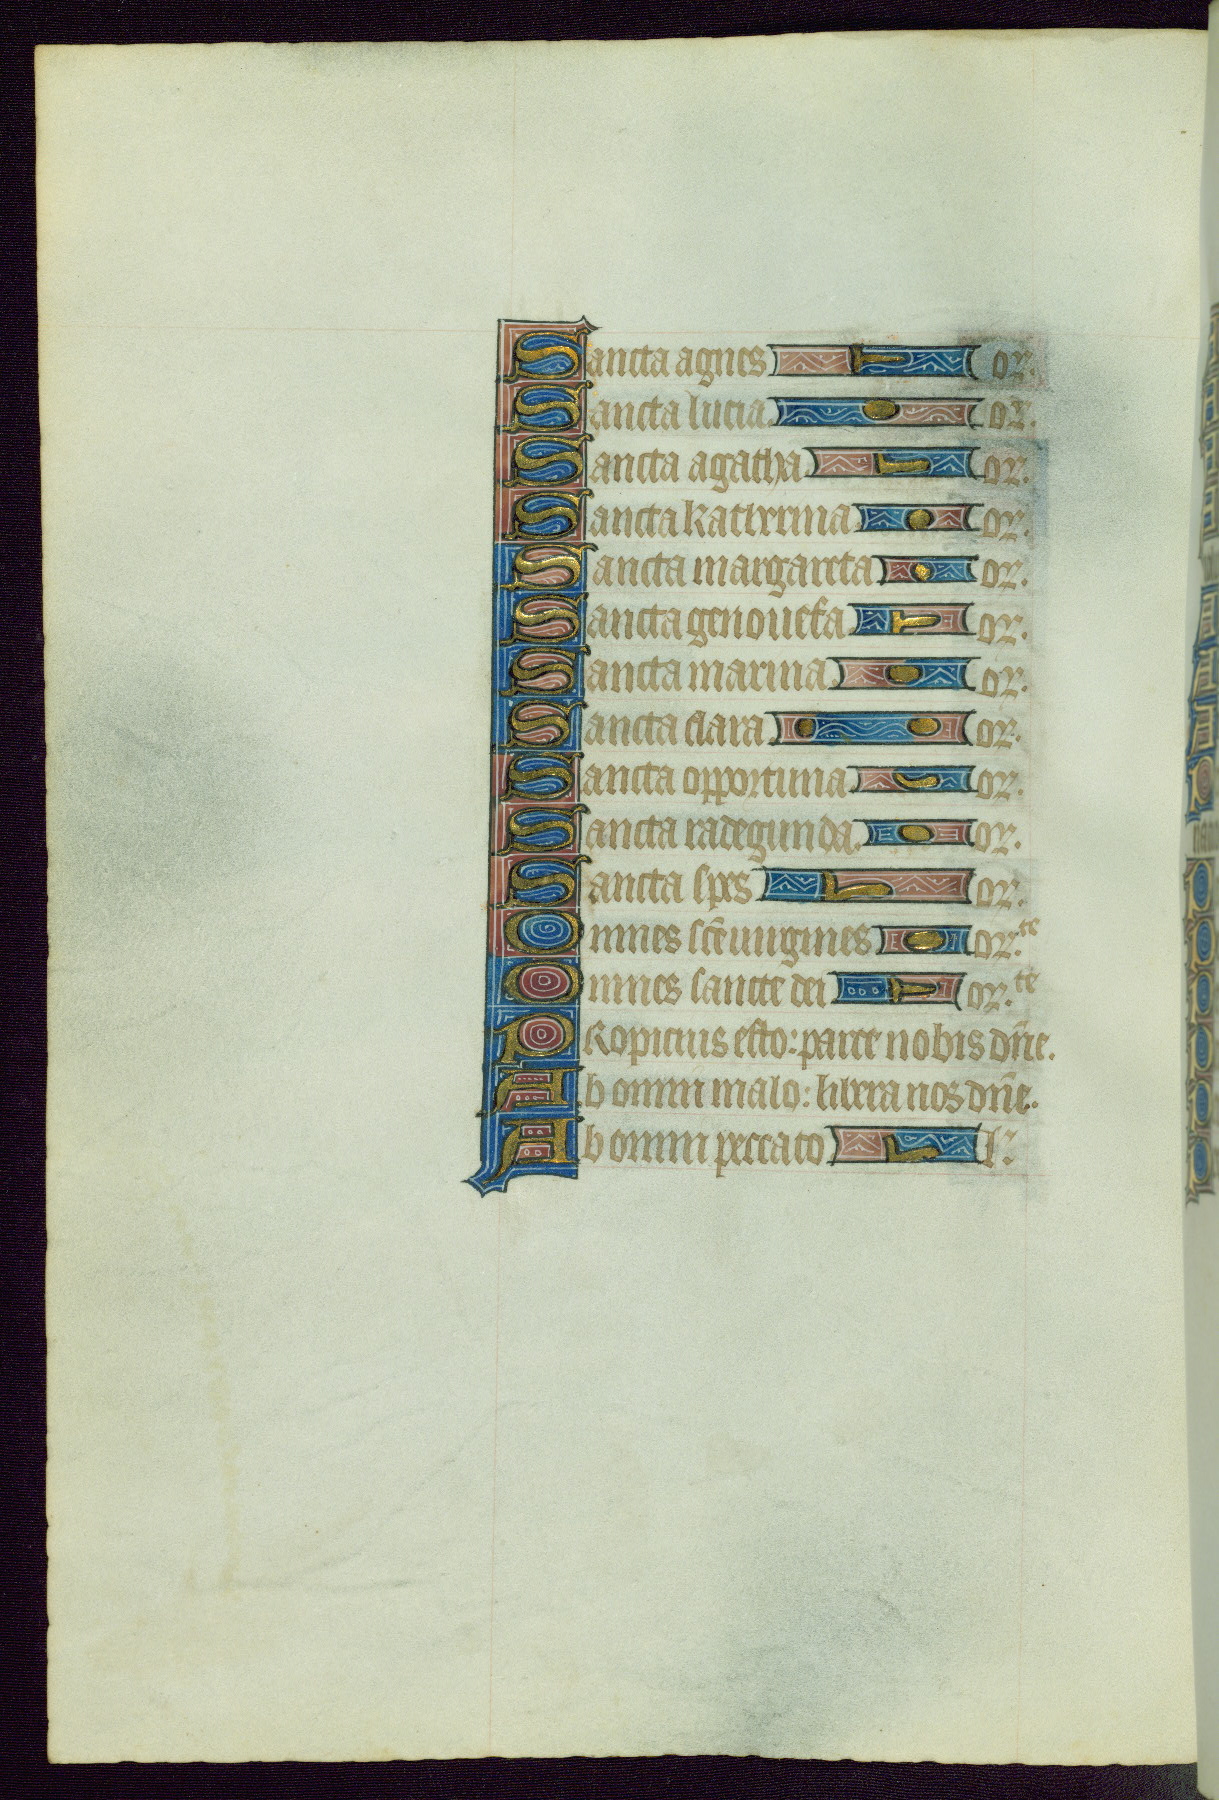 Sancta agnes or.
Sancta lucia or.
Sancta agatha or.
Sancta katherina or.
Sancta margareta or.
Sancta genouefa or.
Sancta marina or.
Sancta clara or.
Sancta opportuna or.
Sancta radegunda. or.
Sancta spes or.
Omnes scē uirgines or.te
Omnes sancte dei or.te
PRopicius esto: parce nobis dn̄e.
Ab omni malo: libera nos dn̄e.
Ab omni peccato l.